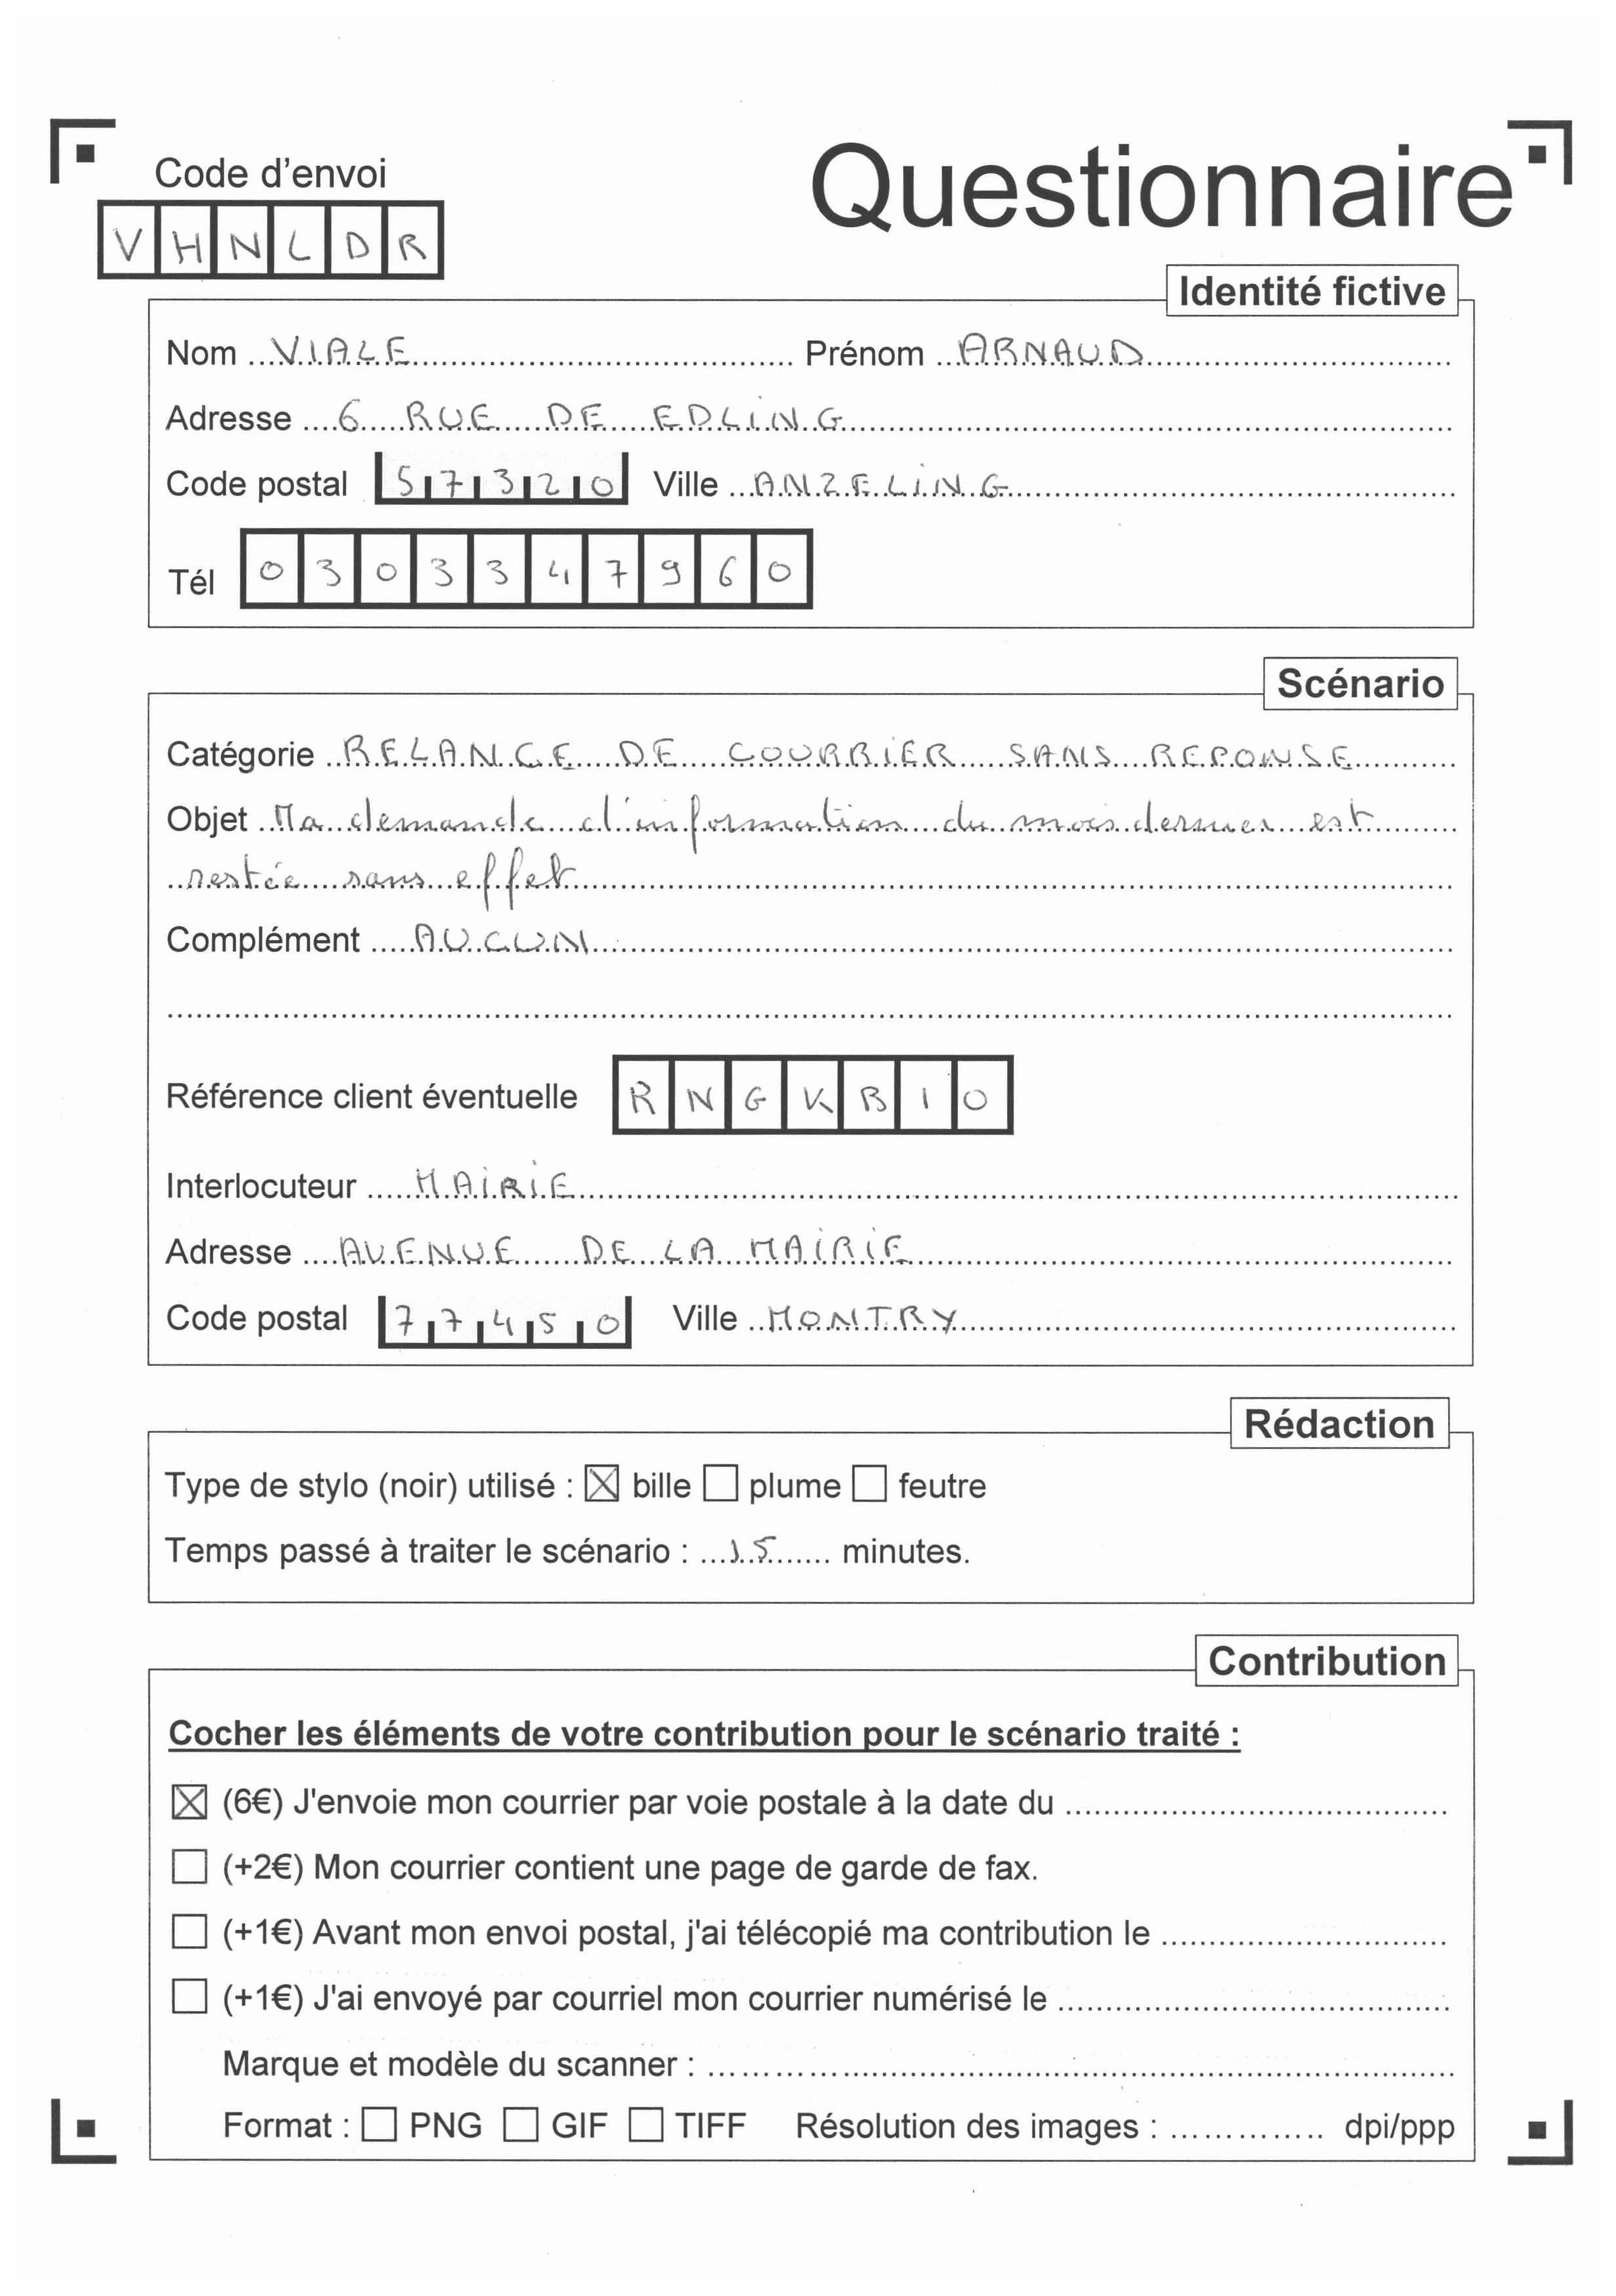 Code d'envoi
Questionnaire
VHNLDR
Identité fictive
Nom VIALE Prénom ARNAUD
Adresse 6 RUE DE EDLING
Code postal 57320 Ville ANZELING
Tél 0303347960
Scénario
Catégorie RELANCE DE COURRIER SANS REPONSE
Objet Ma demande d'information du mois dernier est
restée sans effet
Complément AUCUN
Référence client éventuelle RNGKB10
Interlocuteur MAIRIE
Adresse AVENUE DE LA MAIRIE
Code postal 77450 Ville MONTRY
Rédaction
Type de stylo (noir) utilisé : ☒ bille ☐ plume ☐ feutre
Temps passé à traiter le scénario : 15 minutes.
Contribution
Cocher les éléments de votre contribution pour le scénario traité :
☒ (6€) J'envoie mon courrier par voie postale à la date du
☐ (+2€) Mon courrier contient une page de garde de fax.
☐ (+1€) Avant mon envoi postal, j'ai télécopié ma contribution le
☐ (+1€) J'ai envoyé par courriel mon courrier numérisé le
Marque et modèle du scanner :
Format : ☐ PNG ☐ GIF ☐ TIFF Résolution des images : dpi/ppp